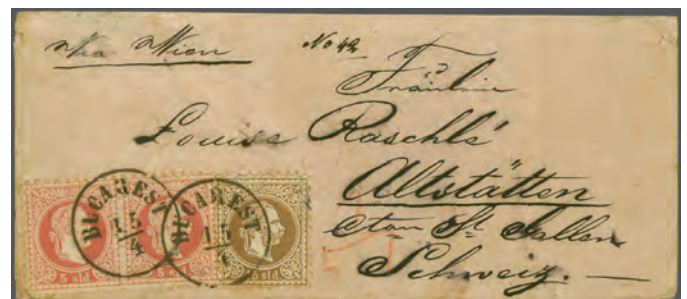 Via Wien
No 42
Fräulein
Louise Raschle'
Altstätten
Cton St Gallen
Schweiz. —
BUCAREST
15/4
BUCAREST
15/4
5 sld
5 sld
15 sld